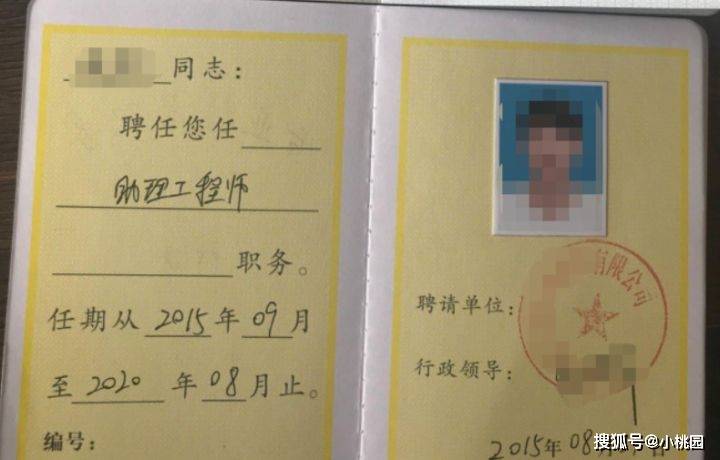 同志：
聘任您任
助理工程师
职务。
任期从2015年09月
至2020年08月止。
编号：
有限公司
聘请单位：
行政领导：
2015年08月
搜狐号@小桃园